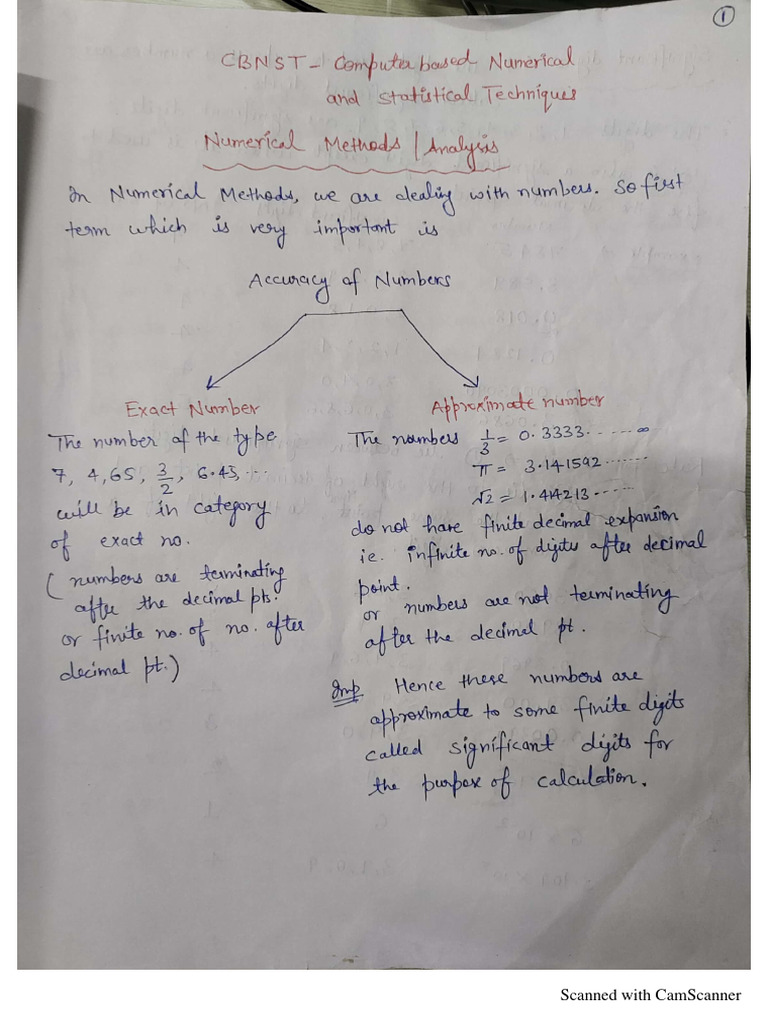 1
CBNST - Computer based Numerical
and Statistical Techniques
Numerical Methods / Analysis
In Numerical Methods, we are dealing with numbers. So first
term which is very important is
Accuracy of Numbers
Exact Number
The number of the type
7, 4, 65, 3/2, 6.45, ...
will be in category
of exact no.
(numbers are terminating
after the decimal pts.
or finite no. of no. after
decimal pt.)
Approximate number
The numbers 1/3 = 0.3333.......∞
π = 3.141592.......
√2 = 1.414213......
do not have finite decimal expansion
ie. infinite no. of digits after decimal
point.
or numbers are not terminating
after the decimal pt.
Imp Hence these numbers are
approximate to some finite digits
called significant digits for
the purpose of calculation.
Scanned with CamScanner